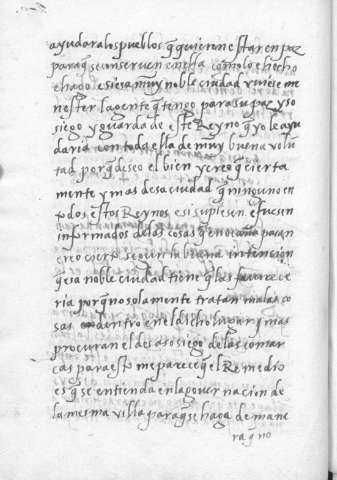 ayudara los pueblos q̃ quieren estar en paz
para q̃ se conserven en ella como lo e hecho
e hago e si esa muy noble ciudad uviese me
nester la gente q̃ tengo para su paz y so
siego y guarda de este Reyno q̃ yo le ayu
daria con toda ella de muy buena volun
tad porq̃ deseo el bien y creo q̃ cierta
mente y mas desa ciudad q̃ ninguno en
todos estos Reynos e si supiesen e fuesen
informados de las cosas q̃ en pasan
creo cierto segun la buena intencion
q̃ esa noble ciudad tiene q̃ les favorece
ria porq̃ no solamente tratan malas co
sas dentro en el dicho lugar q̃ mas
procuran el desasosiego de las comar
cas para esto me parece q̃ el Remedio
es q̃ se entienda en la governacion de
la mesma villa para q̃ se haga de mane
ra q̃ no